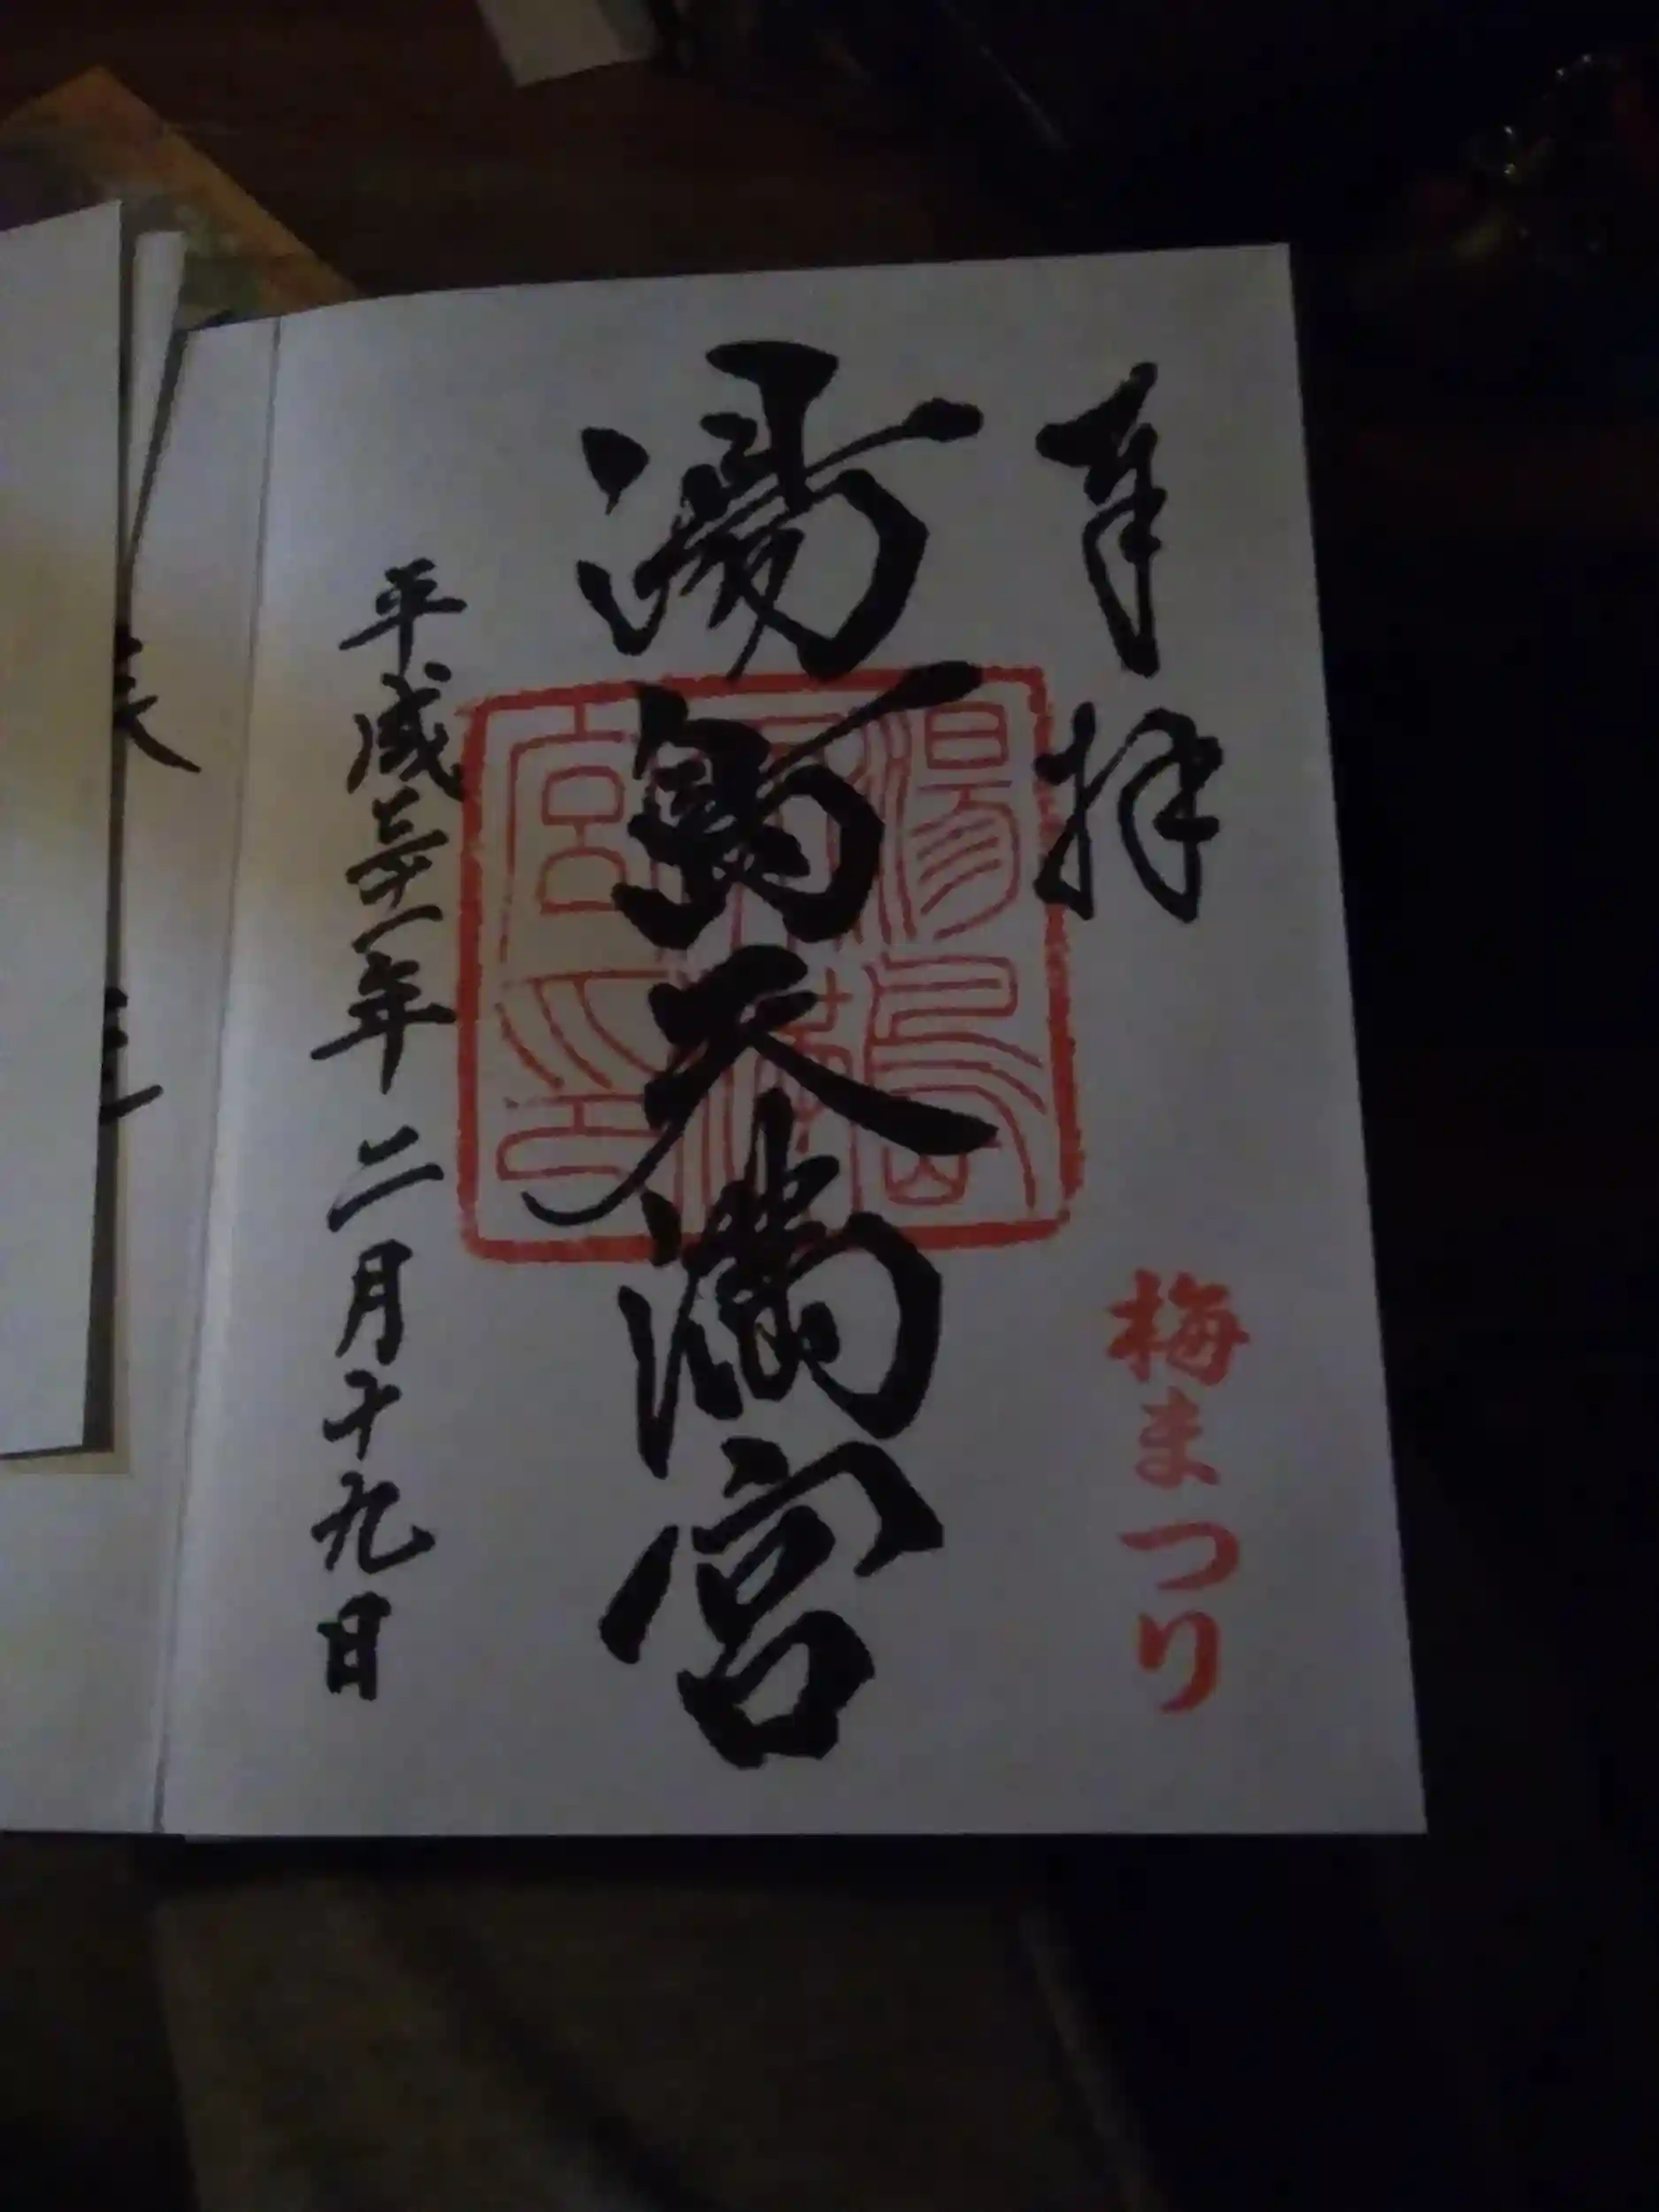 奉拝
梅まつり
湯島天満宮
湯島天満宮印
平成三十一年二月十九日